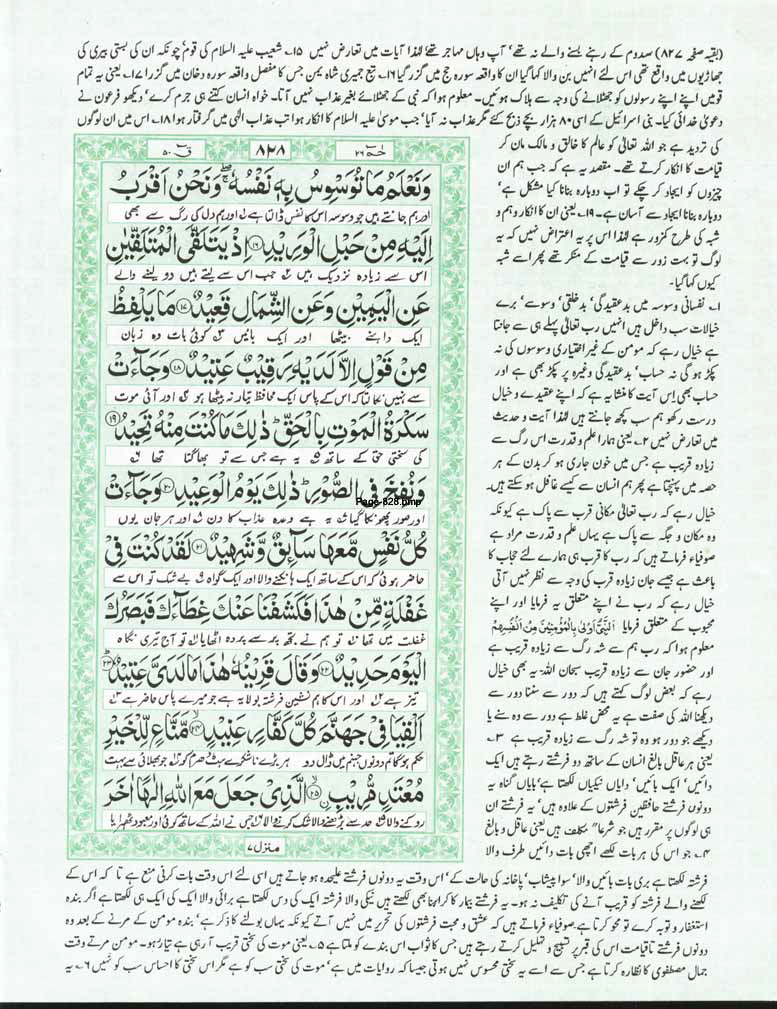 (بقیہ صفحہ ۸۲۷) سدوم کے رہنے بسنے والے نہ تھے' آپ وہاں مہاجر تھے لہٰذا آیات میں تعارض نہیں ۱۵۔ شعیب علیہ السلام کی قوم' چونکہ ان کی بستی بیری کی
جھاڑیوں میں واقع تھی اس لئے انہیں بن والا کہا گیا ان کا واقعہ سورہ حج میں گزر گیا ۱۶۔ تبع حمیری شاہ یمن جس کا مفصل واقعہ سورہ دخان میں گزرا ۱۷۔ یعنی یہ تمام
قومیں اپنے اپنے رسولوں کو جھٹلانے کی وجہ سے ہلاک ہوئیں۔ معلوم ہوا کہ نبی کے جھٹلائے بغیر عذاب نہیں آتا۔ خواہ انسان کتنے ہی جرم کرے' دیکھو فرعون نے
دعویٰ خدائی کیا۔ بنی اسرائیل کے اسی ۸۰ ہزار بچے ذبح کئے مگر عذاب نہ آیا' جب موسیٰ علیہ السلام کا انکار ہوا تب عذاب الٰہی میں گرفتار ہوا ۱۸۔ اس میں ان لوگوں
کی تردید ہے جو اللہ تعالیٰ کو عالم کا خالق و مالک مان کر
قیامت کا انکار کرتے تھے۔ مقصد یہ ہے کہ جب ہم ان
چیزوں کو ایجاد کر چکے تو اب دوبارہ بنانا کیا مشکل ہے'
دوبارہ بنانا ایجاد سے آسان ہے۔ ۱۹۔ یعنی ان کا انکار وہم و
شبہ کی طرح کمزور ہے لہٰذا اس پر یہ اعتراض نہیں کہ یہ
لوگ تو بہت زور سے قیامت کے منکر تھے پھر اسے شبہ
کیوں کہا گیا۔
۱۔ نفسانی وسوسہ میں بدعقیدگی' بدخلقی' وسوسے' برے
خیالات سب داخل ہیں انہیں رب تعالیٰ پہلے ہی سے جانتا
ہے خیال رہے کہ مومن کے غیر اختیاری وسوسوں کی نہ
پکڑ ہوگی نہ حساب' بدعقیدگی وغیرہ پر پکڑ بھی ہے اور
حساب بھی اس آیت کا منشا یہ ہے کہ اپنے عقیدے و خیال
درست رکھو ہم سب کچھ جانتے ہیں لہٰذا آیت و حدیث
میں تعارض نہیں ۲۔ یعنی ہمارا علم و قدرت اس رگ سے
زیادہ قریب ہے جس میں خون جاری ہو کر بدن کے ہر
حصہ میں پہنچتا ہے پھر ہم انسان سے کیسے غافل ہو سکتے ہیں۔
خیال رہے کہ رب تعالیٰ مکانی قرب سے پاک ہے کیونکہ
وہ مکان و جگہ سے پاک ہے یہاں علم و قدرت مراد ہے
صوفیاء فرماتے ہیں کہ رب کا قرب ہی ہمارے لئے حجاب کا
باعث ہے جیسے جان زیادہ قرب کی وجہ سے نظر نہیں آتی
خیال رہے کہ رب نے اپنے متعلق یہ فرمایا اور اپنے
محبوب کے متعلق فرمایا اَلنَّبِیُّ اَوْلٰی بِالْمُؤْمِنِیْنَ مِنْ اَنْفُسِهِمْ
معلوم ہوا کہ رب ہم سے شہ رگ سے زیادہ قریب ہے
اور حضور جان سے زیادہ قریب سبحان اللہ یہ بھی خیال
رہے کہ بعض لوگ کہتے ہیں کہ دور سے سننا دور سے
دیکھنا اللہ کی صفت ہے یہ محض غلط ہے دور سے وہ سنے یا
دیکھے جو دور ہو وہ تو شہ رگ سے زیادہ قریب ہے ۳۔
یعنی ہر عاقل بالغ انسان کے ساتھ دو فرشتے رہتے ہیں ایک
دائیں' ایک بائیں' دایاں نیکیاں لکھتا ہے' بایاں گناہ یہ
دونوں فرشتے حافظین فرشتوں کے علاوہ ہیں' یہ فرشتے ان
ہی لوگوں پر مقرر ہیں جو شرعاً مکلف ہیں یعنی عاقل و بالغ
۴۔ جو اس کی ہر بات لکھے اچھی بات دائیں طرف والا
حٰمٓ ۲۶
۸۲۸
قٓ ۵۰
وَنَعْلَمُ مَا تُوَسْوِسُ بِهٖ نَفْسُهٗ ۖ وَنَحْنُ اَقْرَبُ
اور ہم جانتے ہیں جو وسوسہ اس کا نفس ڈالتا ہے اور ہم دل کی رگ سے بھی
اِلَيْهِ مِنْ حَبْلِ الْوَرِيْدِ ۱۶ اِذْ يَتَلَقَّى الْمُتَلَقِّيٰنِ
اس سے زیادہ نزدیک ہیں جب اس سے لیتے ہیں دو لینے والے
عَنِ الْيَمِيْنِ وَعَنِ الشِّمَالِ قَعِيْدٌ ۱۷ مَا يَلْفِظُ
ایک داہنے بیٹھا اور ایک بائیں کوئی بات وہ زبان
مِنْ قَوْلٍ اِلَّا لَدَيْهِ رَقِيْبٌ عَتِيْدٌ ۱۸ وَجَآءَتْ
سے نہیں نکالتا کہ اس کے پاس ایک محافظ تیار نہ بیٹھا ہو اور آئی موت
سَكْرَةُ الْمَوْتِ بِالْحَقِّ ؕ ذٰلِكَ مَا كُنْتَ مِنْهُ تَحِيْدُ ۱۹
کی سختی حق کے ساتھ یہ ہے جس سے تو بھاگتا تھا
وَنُفِخَ فِي الصُّوْرِ ؕ ذٰلِكَ يَوْمُ الْوَعِيْدِ ۲۰ وَجَآءَتْ
Page-828.bmp
اور صور پھونکا گیا یہ ہے وعدہ عذاب کا دن اور ہر جان یوں
كُلُّ نَفْسٍ مَّعَهَا سَآىِٕقٌ وَّشَهِيْدٌ ۲۱ لَقَدْ كُنْتَ فِيْ
حاضر ہوئی کہ اس کے ساتھ ایک ہانکنے والا اور ایک گواہ بے شک تو اس سے
غَفْلَةٍ مِّنْ هٰذَا فَكَشَفْنَا عَنْكَ غِطَآءَكَ فَبَصَرُكَ
غفلت میں تھا تو ہم نے تجھ پر سے پردہ اٹھایا تو آج تیری نگاہ
الْيَوْمَ حَدِيْدٌ ۲۲ وَقَالَ قَرِيْنُهٗ هٰذَا مَا لَدَيَّ عَتِيْدٌ ۲۳
تیز ہے اور اس کا ہم نشین فرشتہ بولا یہ ہے جو میرے پاس حاضر ہے
اَلْقِيَا فِيْ جَهَنَّمَ كُلَّ كَفَّارٍ عَنِيْدٍ ۲۴ مَّنَّاعٍ لِّلْخَيْرِ
حکم ہوگا تم دونوں جہنم میں ڈال دو ہر بڑے ناشکرے ہٹ دھرم کو جو بھلائی سے بہت
مُعْتَدٍ مُّرِيْبِ ۲۵ الَّذِيْ جَعَلَ مَعَ اللّٰهِ اِلٰهًا اٰخَرَ
روکنے والا حد سے بڑھنے والا شک کرنے والا جس نے اللہ کے ساتھ کوئی اور معبود ٹھہرایا
منزل ۷
فرشتہ لکھتا ہے بری بات بائیں والا' سوا پیشاب' پاخانہ کی حالت کے' اس وقت یہ دونوں فرشتے علیحدہ ہو جاتے ہیں اسی لئے اس وقت بات کرنی منع ہے تا کہ اس کے
لکھنے والے فرشتہ کو قریب آنے کی تکلیف نہ ہو۔ یہ فرشتے بیمار کا کراہنا بھی لکھتے ہیں نیکی والا فرشتہ ایک کی دس لکھتا ہے برائی والا ایک کی ایک ہی لکھتا ہے اگر بندہ
استغفار و توبہ کرے تو محو کرتا ہے۔ صوفیاء فرماتے ہیں کہ عشق و محبت فرشتوں کی تحریر میں نہیں آتے کیونکہ یہاں بولنے کا ذکر ہے' بندہ مومن کے مرنے کے بعد وہ
دونوں فرشتے تاقیامت اس کی قبر پر تسبیح و تہلیل کرتے رہتے ہیں جس کا ثواب اس بندے کو ملتا ہے ۵۔ یعنی موت کی سختی قریب آ رہی ہے تیار ہو۔ مومن مرتے وقت
جمال مصطفوی کا نظارہ کرتا ہے جس سے اسے یہ سختی محسوس نہیں ہوتی جیسا کہ روایات میں ہے' موت کی سختی سب کو ہے مگر اس سختی کا احساس سب کو نہیں ۶۔ یہ